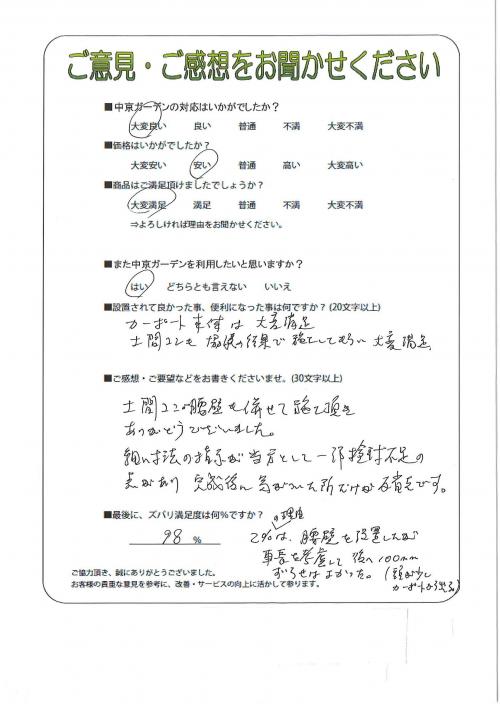 ご意見・ご感想をお聞かせください
■中京ガーデンの対応はいかがでしたか？
大変良い 良い 普通 不満 大変不満
■価格はいかがでしたか？
大変安い 安い 普通 高い 大変高い
■商品はご満足頂けましたでしょうか？
大変満足 満足 普通 不満 大変不満
⇒よろしければ理由をお聞かせください。
■また中京ガーデンを利用したいと思いますか？
はい どちらとも言えない いいえ
■設置されて良かった事、便利になった事は何ですか？(20文字以上)
カーポート本体は大変満足
土間コンも 結果で施工してもらい大変満足
■ご感想・ご要望などをお書きくださいませ。(30文字以上)
土間コン腰壁も併せて施工頂き
ありがとうございました。
細い寸法の指示が当方として一部検討不足の
点があり 完成後に気がついた所だけが反省です。
■最後に、ズバリ満足度は何％ですか？
98 %
の理由
2%は、腰壁を設置したが
車長を考慮して後へ100mm
ずらせばよかった。(頭が少し
カーポートから出る)
ご協力頂き、誠にありがとうございました。
お客様の貴重な意見を参考に、改善・サービスの向上に活かして参ります。